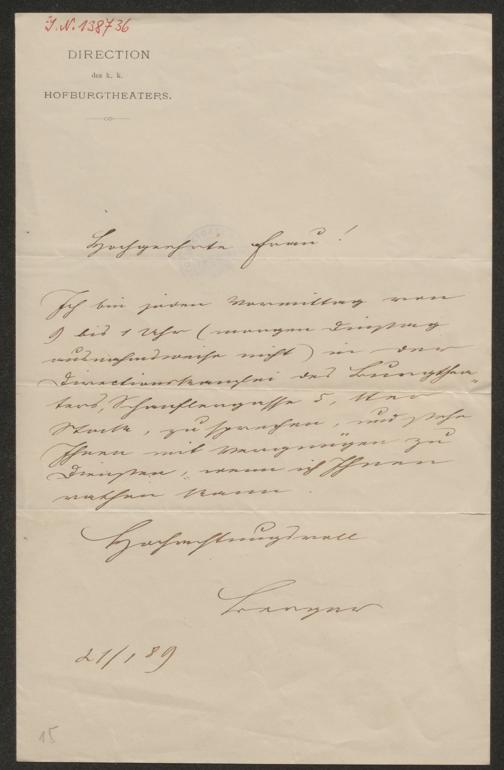 I. N. 138736
DIRECTION
des k. k.
HOFBURGTHEATERS.
Hochgeehrte Frau!
Ich bin jeden Vormittag von
9 bis 1 Uhr (morgen Dinstag
ausnahmsweise nicht) in der
Directionskanzlei des Burgthea-
ters, Schauflergasse 5, II
Stock, zu sprechen, und stehe
Ihnen mit Vergnügen zu
Diensten, wenn ich Ihnen
rathen kann.
Hochachtungsvoll
Berger
21/1 89
15